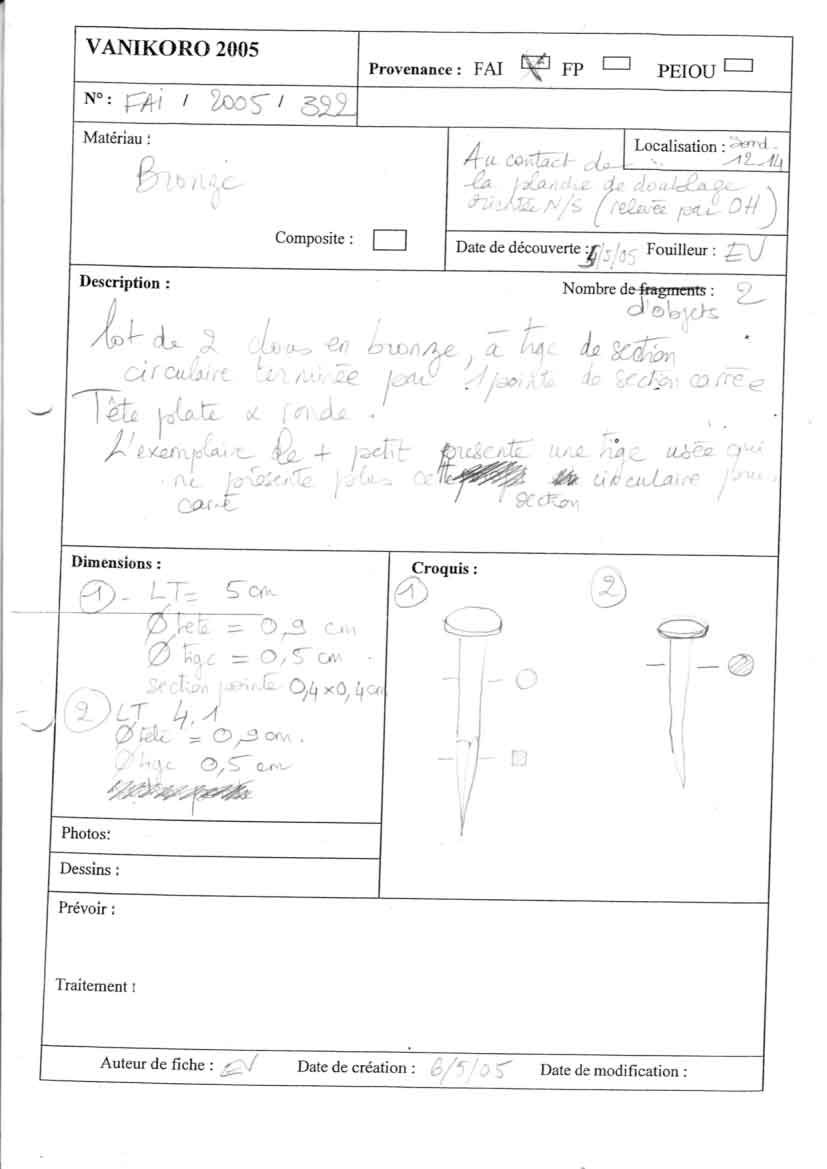 VANIKORO 2005
Provenance : FAI FP PEIOU
N° : FAI / 2005 / 322
Matériau :
Bronze
Composite :
Localisation :
12.14
Au contact de
la planche de doublage
orientée N/S (relevée par OH)
Date de découverte : /5/05 Fouilleur : EV
Description :
Nombre de fragments : 2
d'objets
Lot de 2 clous en bronze, à tige de section
circulaire terminée par 1 pointe de section carrée
Tête plate & ronde.
L'exemplaire le + petit présente une tige usée qui
ne présente plus cette circulaire puis
carré section
Dimensions :
① - LT = 5 cm
Ø tete = 0,9 cm
Ø tige = 0,5 cm
section pointe 0,4 x 0,4 cm
② LT 4.1
Ø tete = 0,9 cm.
Ø tige 0,5 cm
Croquis :
① ②
Photos:
Dessins :
Prévoir :
Traitement :
Auteur de fiche : EV Date de création : 6/5/05 Date de modification :